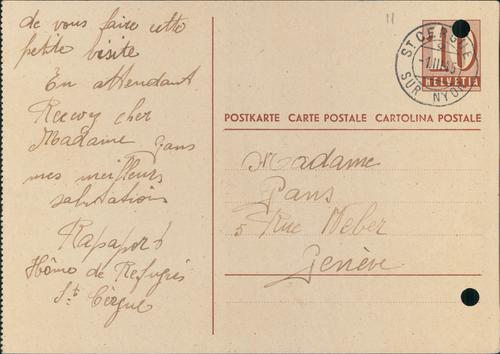 de vous faire cette
petite visite
En attendant
Recevez cher
Madame Gans
mes meilleurs
salutations
Rapaport
Home de Refugiés
St. Cergue
ST. CERGUE
SUR NYON
10
HELVETIA
POSTKARTE CARTE POSTALE CARTOLINA POSTALE
Madame
Gans
5 Rue Weber
Genève